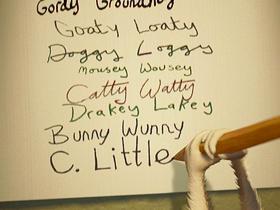 Gordy Groundhog
Goaty Loaty
Doggy Loggy
Mousey Wousey
Catty Watty
Drakey Lakey
Bunny Wunny
C. Little